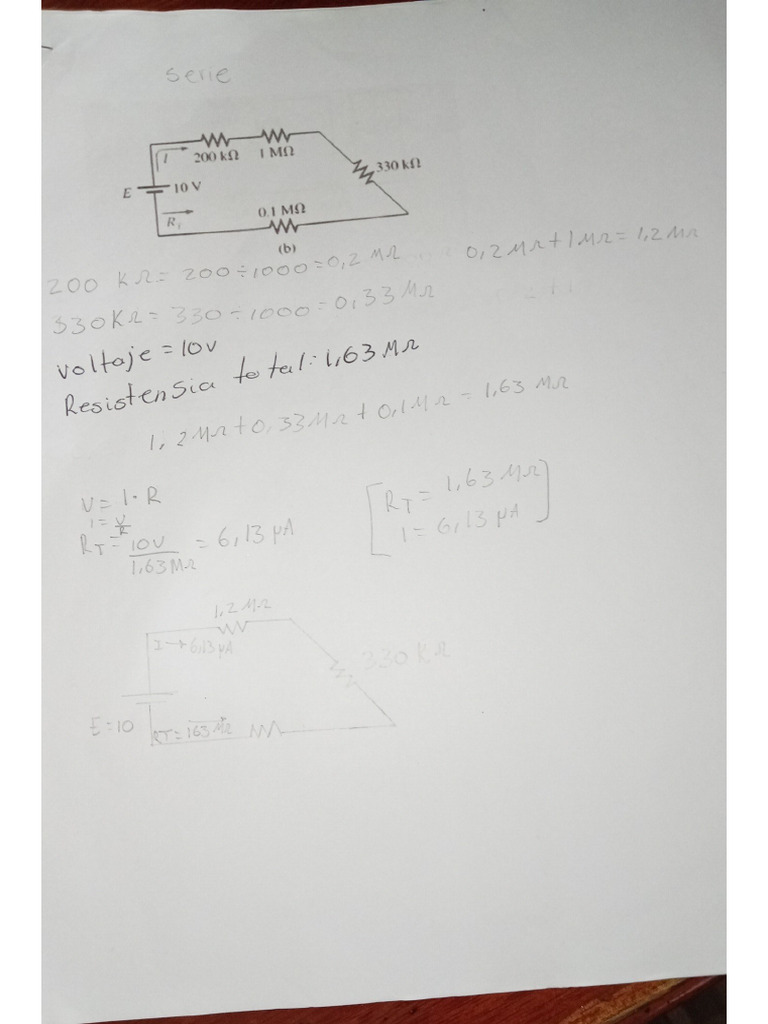 serie
I
200 kΩ
1 MΩ
330 kΩ
E
10 V
0.1 MΩ
(b)
200 KΩ = 200 ÷ 1000 = 0,2 MΩ
0,2 MΩ + 1 MΩ = 1,2 MΩ
330KΩ = 330 ÷ 1000 = 0,33 MΩ
Voltaje = 10V
Resistensia total: 1,63 MΩ
1,2MΩ + 0,33MΩ + 0,1MΩ = 1,63 MΩ
V = I · R
I = V/R
RT = 10V/1,63MΩ = 6,13 μA
RT = 1,63 MΩ
I = 6,13 μA
1,2 MΩ
I → 6,13 μA
330 KΩ
E = 10
RT = 163 MΩ